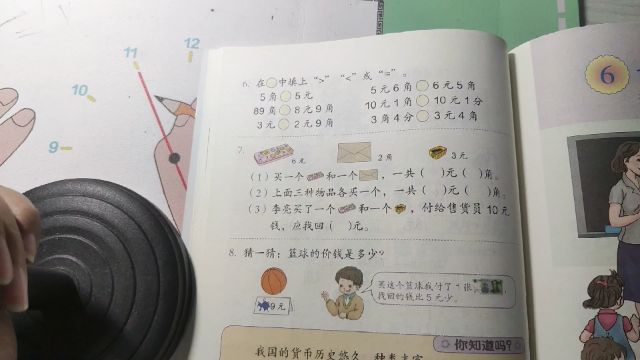 11
12
10
9
6. 在○中填上“>”“<”或“=”。
5角○5元 5元6角○6元5角
89角○8元9角 10元1角○10元1分
3元○2元9角 3角4分○3元4角
7.
6元 2角 3元
(1) 买一个和一个，一共( )元( )角。
(2) 上面三种物品各买一个，一共( )元( )角。
(3) 李亮买了一个和一个，付给售货员10元
钱，应找回( )元。
8. 猜一猜：篮球的价钱是多少？
9元
买这个篮球我付了1张，
找回的钱比5元少。
你知道吗？
我国的货币历史悠久，种类丰富
6